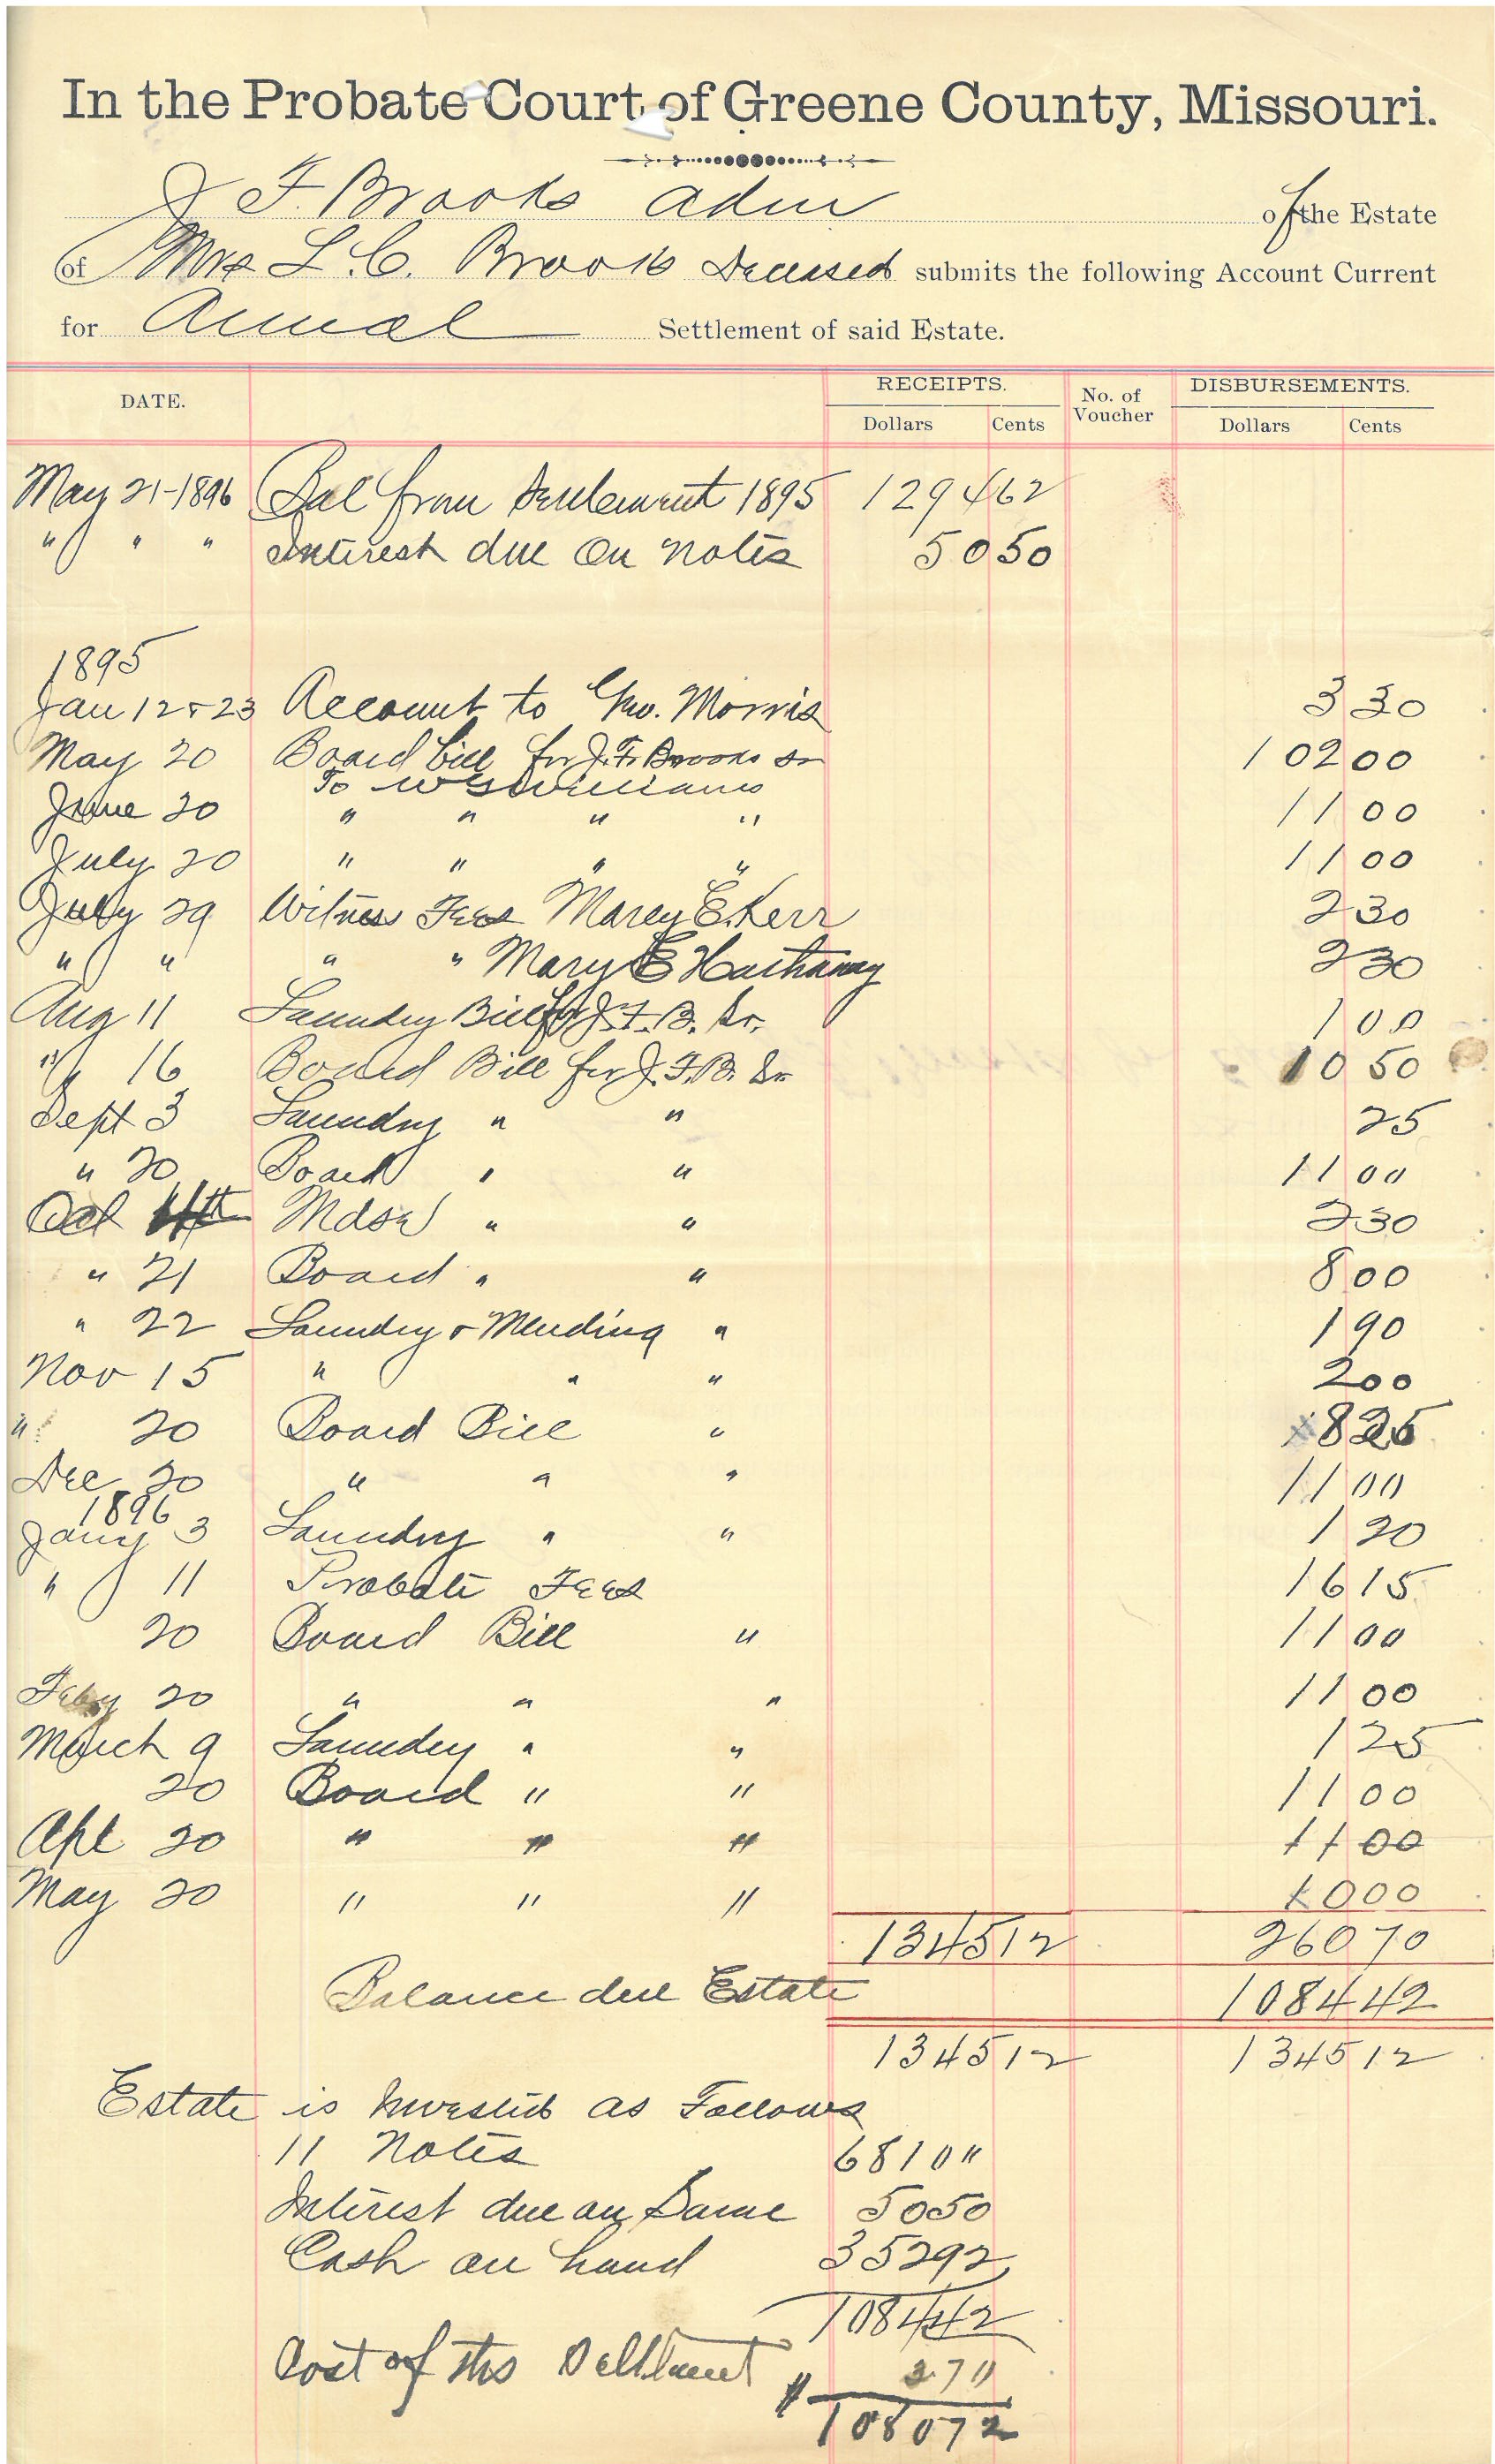 In the Probate Court of Greene County, Missouri.
J F. Brooks Adm of the Estate
of Mrs L. C. Brooks Deceased submits the following Account Current
for Annual Settlement of said Estate.
DATE. RECEIPTS. No. of Voucher DISBURSEMENTS.
Dollars Cents Dollars Cents
May 21-1896 Bal from Settlement 1895 1294 62
" " " Interest due On Notes 50 50
1895
Jan 12 & 23 Account to Geo. Morris 3 30
May 20 Board bill for J. F. Brooks Sr 102 00
To W G Williams
June 20 " " " " 11 00
July 20 " " " " 11 00
July 29 Witness Fees Marey E. Kerr 2 30
" " " " Mary E Hathaway 2 30
Aug 11 Laundry Bill for J. F. B. Sr. 1 00
" 16 Board Bill for J. F. B. Sr. 10 50
Sept 3 Laundry " " 25
" 20 Board " " 11 00
Oct 11th Mdse " " 2 30
" 21 Board " " 8 00
" 22 Laundry & Mending " 1 90
Nov 15 " " " 2 00
" 20 Board Bill " 8 25
Dec 20 " " " 11 00
1896
Jany 3 Laundry " " 1 20
" 11 Probate Fees 16 15
20 Board Bill " 11 00
Feby 20 " " " 11 00
March 9 Laundry " " 1 25
20 Board " " 11 00
Apl 20 " " " 11 00
May 20 " " " 10 00
1345 12 260 70
Balance due Estate 1084 42
1345 12 1345 12
Estate is Invested as Follows
11 Notes 681 0"
Interest due on Same 50 50
Cash on hand 352 92
1084 42
Cost of this Settlement 3 70
$ 1080 72